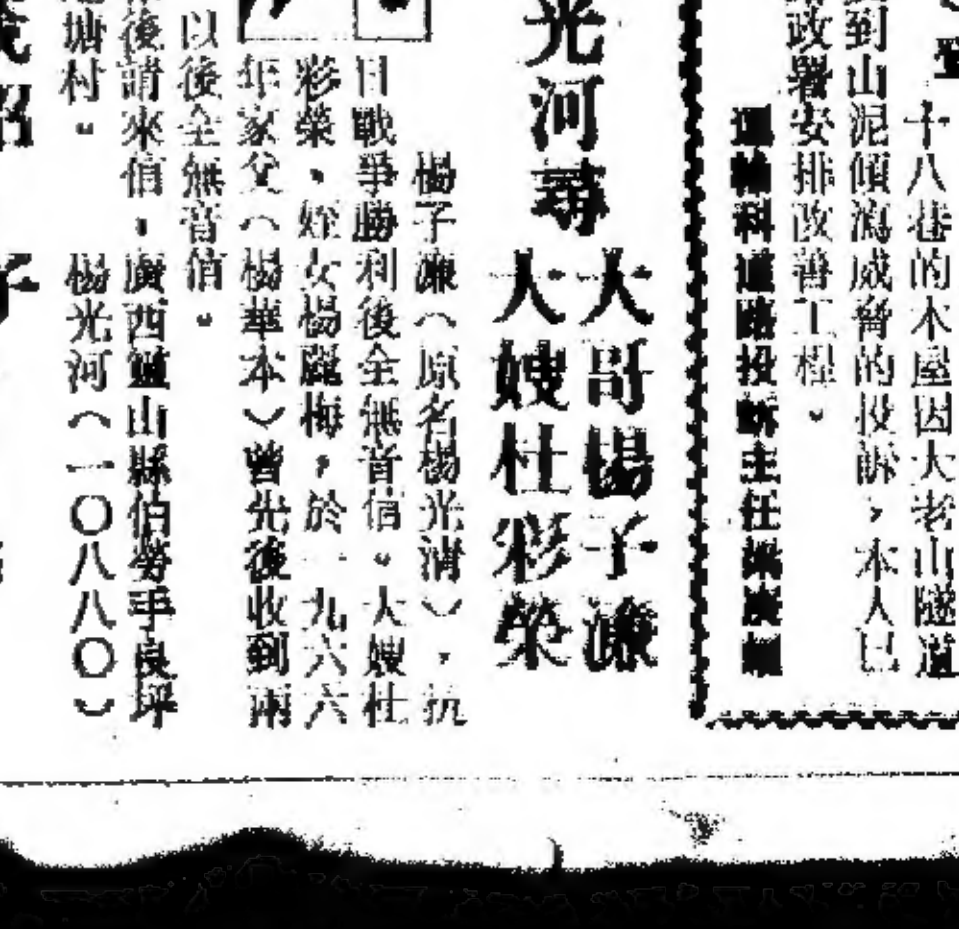 十八巷的木屋因大老山隧道
到山泥傾瀉威脅的投訴，本人已
政署安排改善工程。
運輸科道路投訴主任
光河尋
大哥楊子濂
大嫂杜彩榮
楊子濂（原名楊光清），抗
日戰爭勝利後全無音信。大嫂杜
彩榮，姪女楊麗梅，於一九六六
年家父（楊華本）曾先後收到兩
以後全無音信。
後請來信，廣西靈山縣伯勞手良坪
塘村。
楊光河（一〇八八〇）